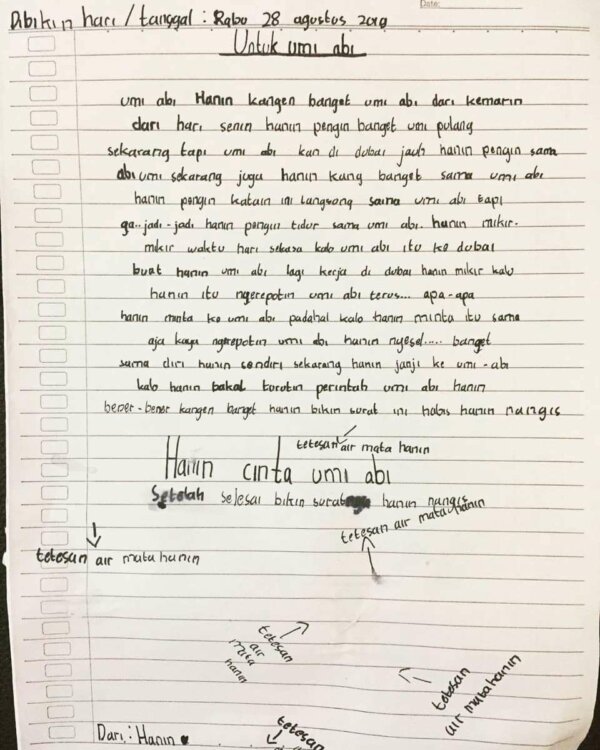 Date:
Dibikin hari / tanggal : Rabo 28 agustus 2019
Untuk umi abi
umi abi Hanin kangen banget umi abi dari kemarin
dari hari senin hanin pengin banget umi pulang
sekarang tapi umi abi kan di dubai jauh hanin pengin sama
abi umi sekarang juga hanin kang banget sama umi abi
hanin pengin katain ini langsong sama umi abi tapi
ga..jadi-jadi hanin pengin tidur sama umi abi. hanin mikir.
mikir waktu hari sekasa kalo umi abi itu ke dubai
buat hanin umi abi lagi kerja di dubai hanin mikir kalo
hanin itu ngerepotin umi abi terus... apa-apa
hanin minta ke umi abi padahal kalo hanin minta itu sama
aja kaya ngerepotin umi abi hanin nyesel..... banget
sama diri hanin sendiri sekarang hanin janji ke umi-abi
kalo hanin bakal torotin perintah umi abi hanin
bener-bener kangen banget hanin bikin surat ini habis hanin nangis
tetesan air mata hanin
Hanin cinta umi abi
Setelah selesai bikin surat hanin nangis
tetesan air mata hanin
tetesan air mata hanin
tetesan
air
mata
hanin
tetesan
air mata hanin
Dari : Hanin
tetesan